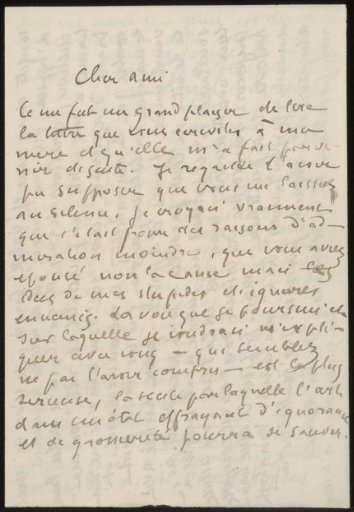 Cher ami
Ce me fut un grand plaisir de lire
la lettre que vous écrivites à ma
mere et qu'elle m'a fait parve-
nir de suite. Je regrette d'avoir
pu supposer que vous me laissiez
au silence, je croyais vraiment
que c'était pour des raisons d'ad-
miration moindre, que vous aviez
épousé non la cause mais
de mes stupides et ignares
ennemis. La voie que je poursuis et
sur laquelle je voudrais m'expli-
quer avec vous — qui semblez
ne pas l'avoir compris — est la plus
serieuse, la seule par laquelle l'art
d'un côté effrayant d'ignorance
et de grossiereté pourra se sauver.